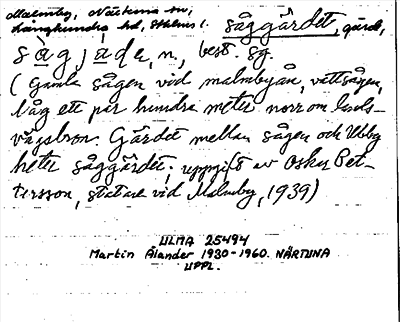 Malmby, Närtuna sn,
Långhundra hd, Sthlms l. Såggärdet, gärde,
s a g j a d e, n, best. sg.
( Gamla sågen vid Malmbyån, vattsågen,
låg ett par hundra meter norr om lands-
vägsbron. Gärdet mellan sågen och Ubby
heter såggärdet; uppgift av Oskar Pet-
tersson, statare vid Malmby, 1939)
ULMA 25494
Martin Ålander 1930-1960. NÄRTUNA
UPPL.